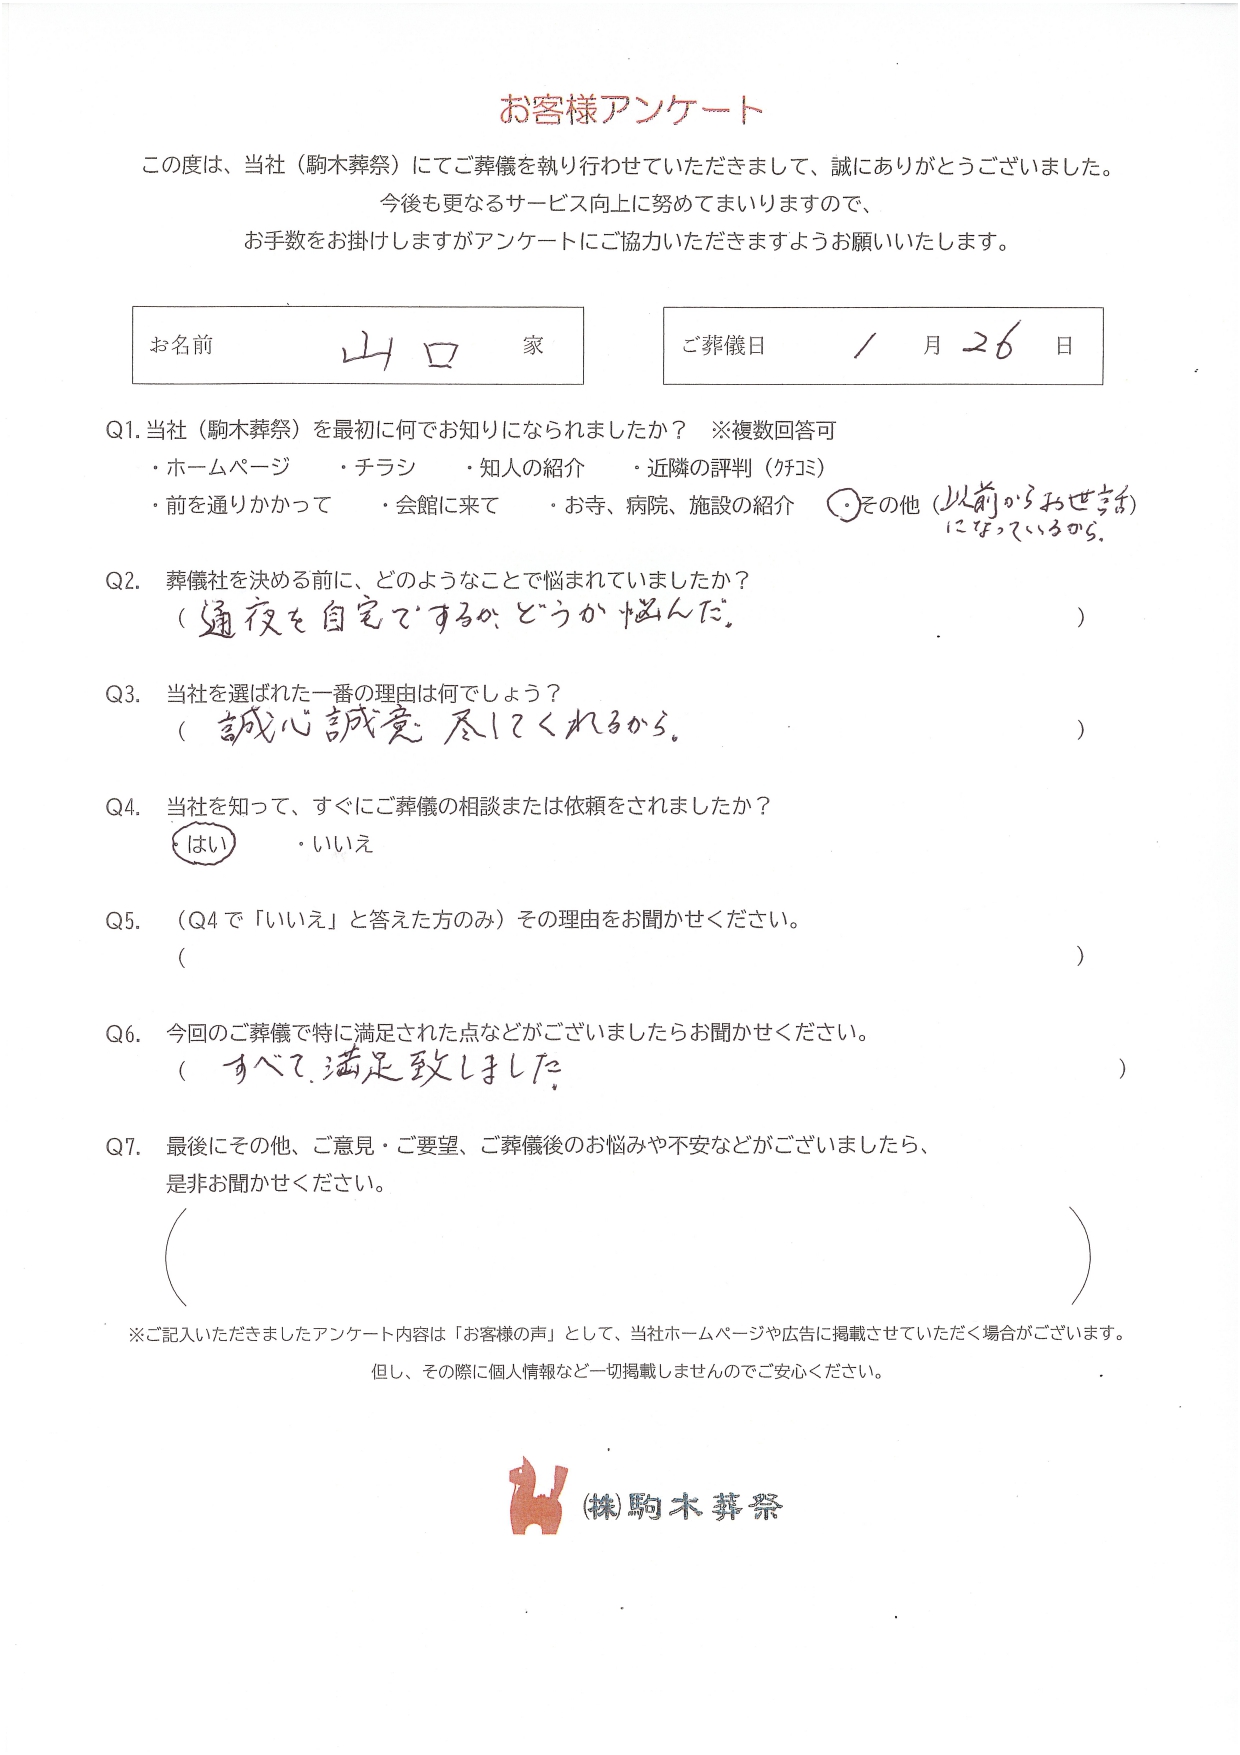 お客様アンケート
この度は、当社（駒木葬祭）にてご葬儀を執り行わせていただきまして、誠にありがとうございました。
今後も更なるサービス向上に努めてまいりますので、
お手数をお掛けしますがアンケートにご協力いただきますようお願いいたします。
お名前 山口 家 ご葬儀日 1 月 26 日
Q1. 当社（駒木葬祭）を最初に何でお知りになられましたか？ ※複数回答可
・ホームページ ・チラシ ・知人の紹介 ・近隣の評判（ｸﾁｺﾐ）
・前を通りかかって ・会館に来て ・お寺、病院、施設の紹介 ・その他（以前からお世話）
になっているから。
Q2. 葬儀社を決める前に、どのようなことで悩まれていましたか？
（通夜を自宅でするか、どうか悩んだ。）
Q3. 当社を選ばれた一番の理由は何でしょう？
（誠心誠意 尽してくれるから。）
Q4. 当社を知って、すぐにご葬儀の相談または依頼をされましたか？
・はい ・いいえ
Q5. （Q4で「いいえ」と答えた方のみ）その理由をお聞かせください。
（ ）
Q6. 今回のご葬儀で特に満足された点などがございましたらお聞かせください。
（すべて、満足致しました。）
Q7. 最後にその他、ご意見・ご要望、ご葬儀後のお悩みや不安などがございましたら、
是非お聞かせください。
（ ）
※ご記入いただきましたアンケート内容は「お客様の声」として、当社ホームページや広告に掲載させていただく場合がございます。
但し、その際に個人情報など一切掲載しませんのでご安心ください。
(株)駒木葬祭